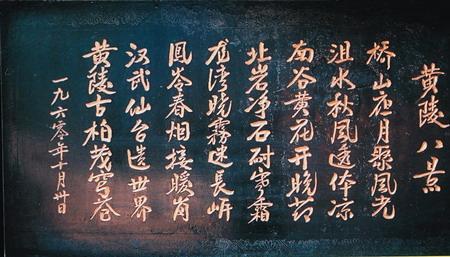 黄陵八景
桥山夜月聚风光
沮水秋风透体凉
南谷黄花开晚节
北岩净石耐寒霜
龙湾晓雾迷长岍
凤岺春烟接暖肖
汉武仙台造世界
黄陵古柏茂穹苍
一九六零年十一月廿日